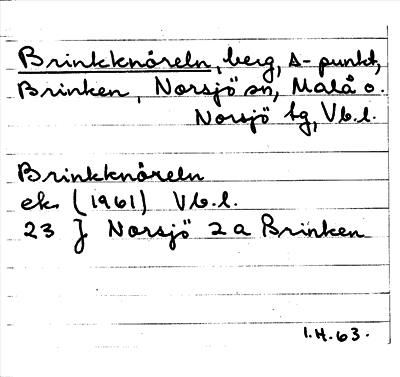 Brinkknöreln, berg, A-punkt,
Brinken, Norsjö sn, Malå o.
Norsjö tg, Vb.l.
Brinkknöreln
ek. (1961) Vb.l.
23 J Norsjö 2a Brinken
I.H.63.